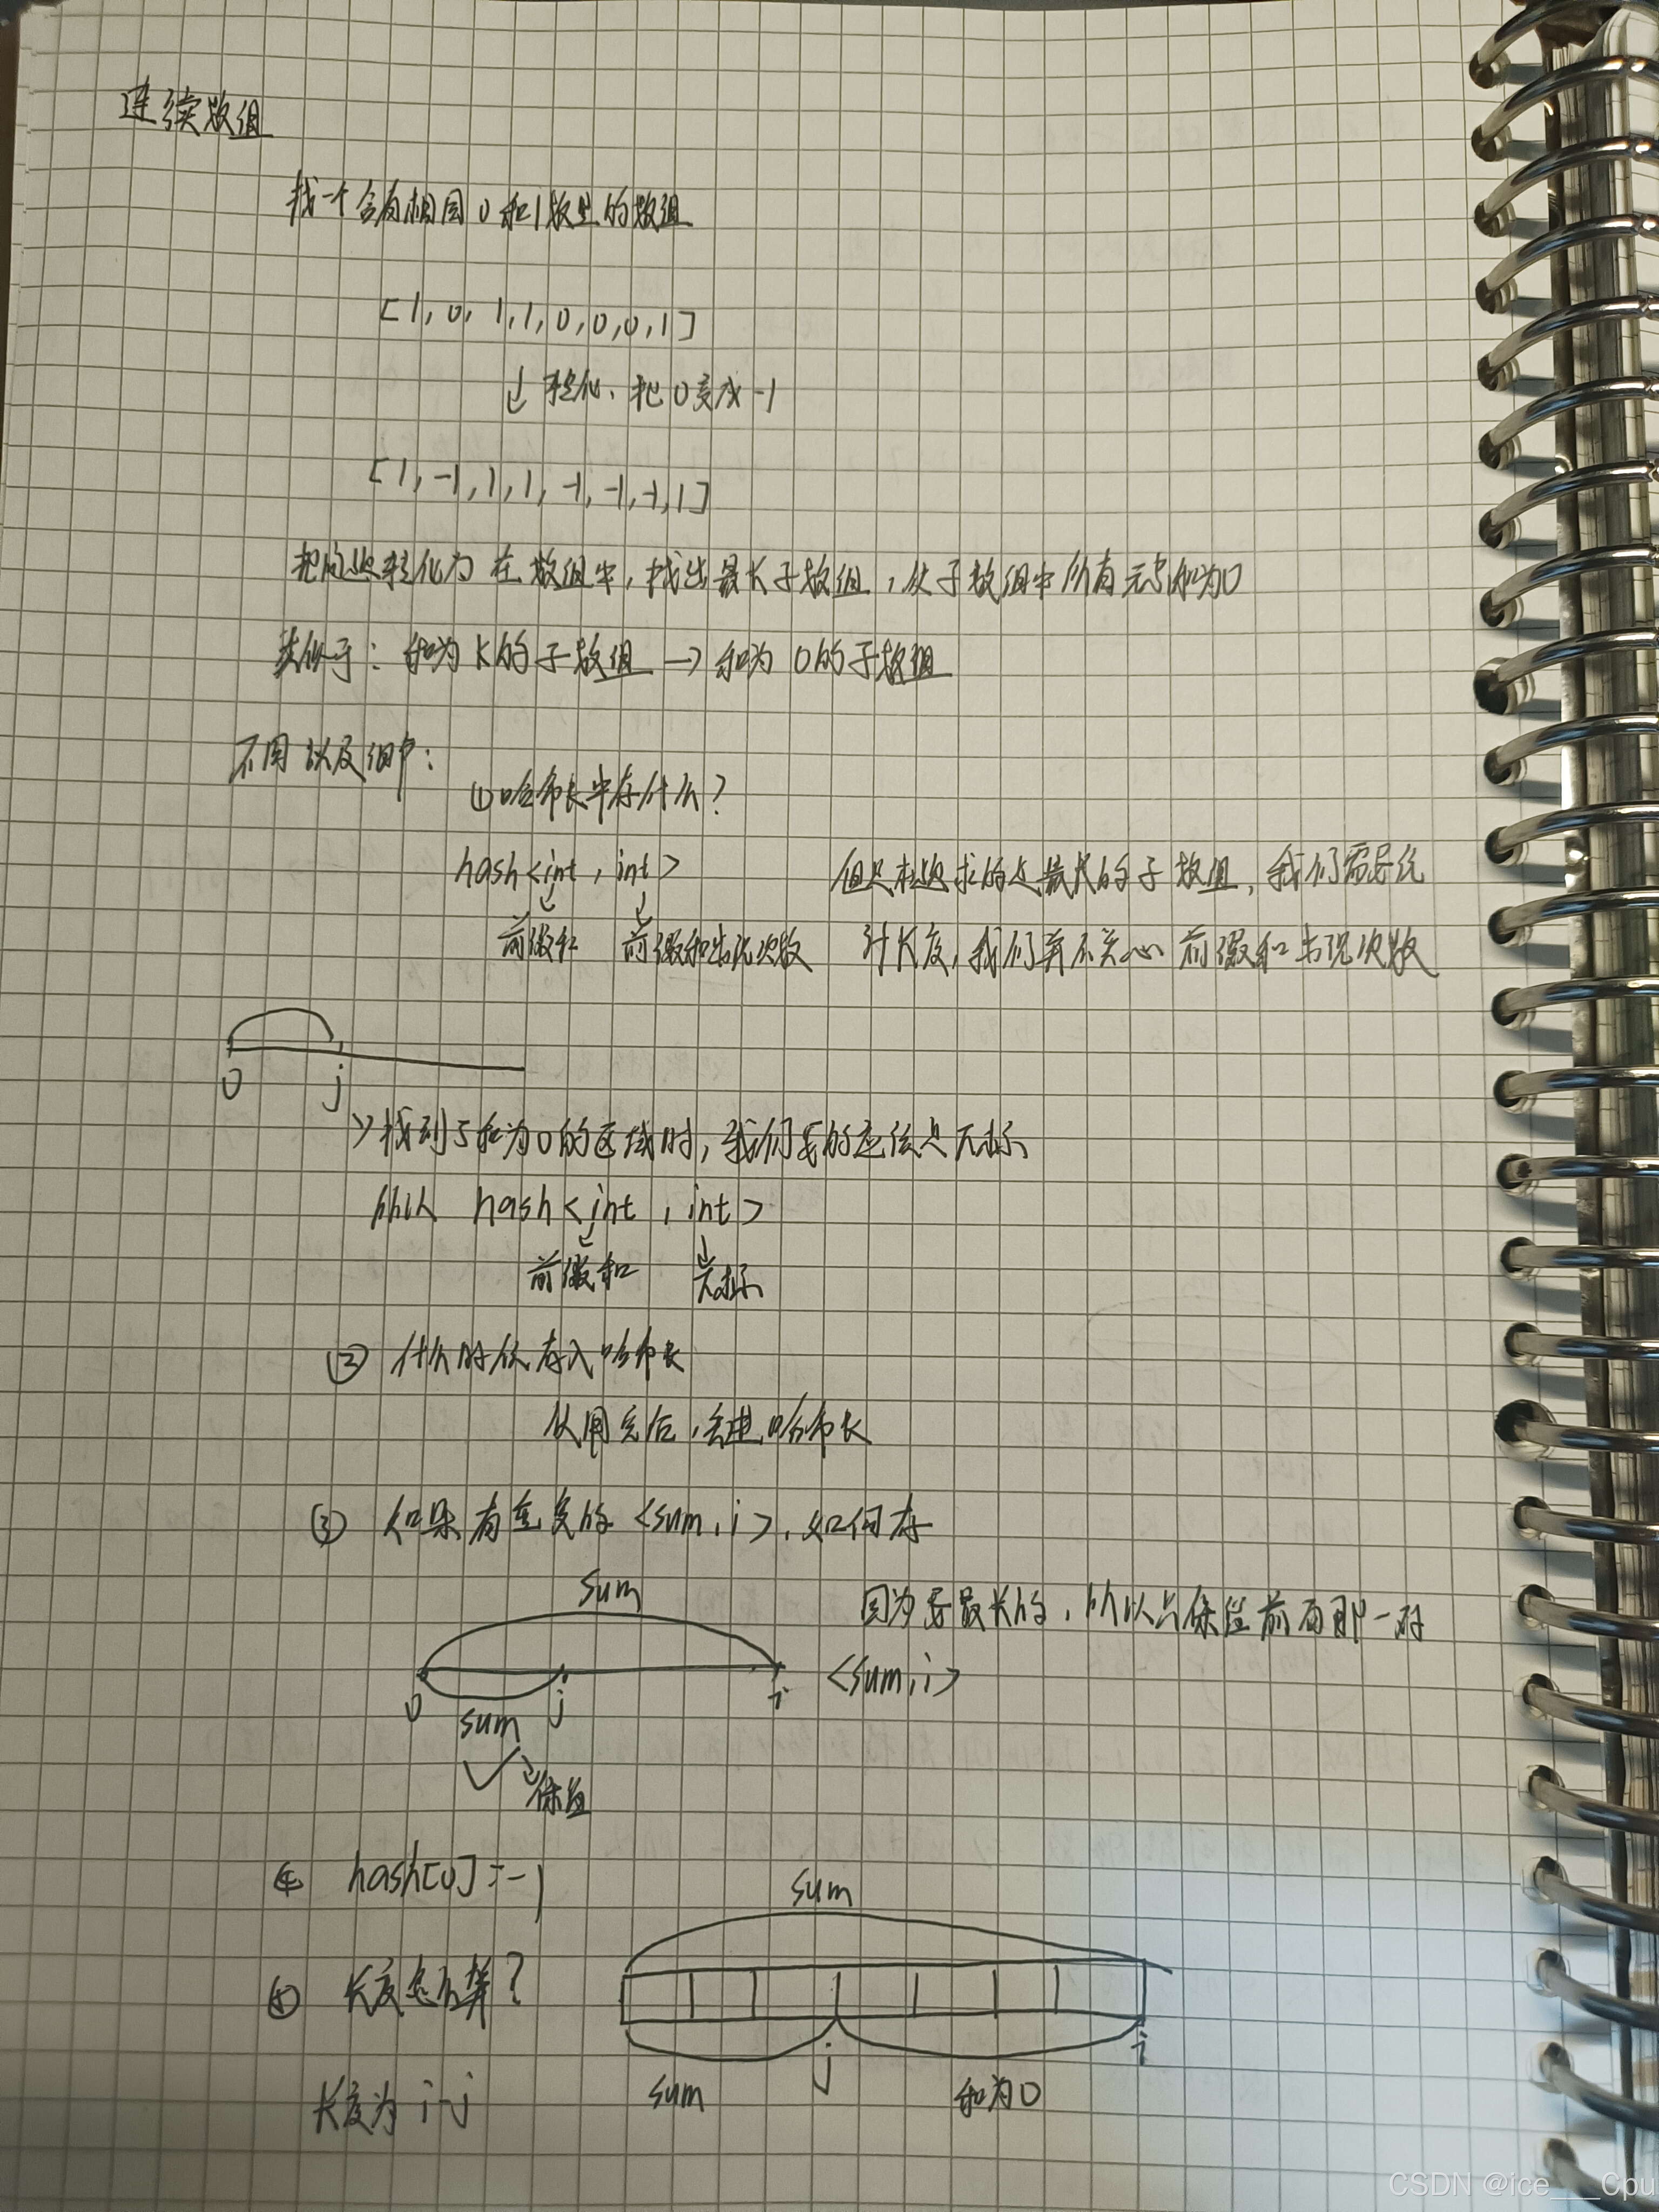 连续数组
找一个含有相同0和1数量的数组
[1, 0, 1, 1, 0, 0, 0, 1]
↓ 转化、把0变成-1
[1, -1, 1, 1, -1, -1, -1, 1]
把问题转化为 在数组中, 找出最长子数组, 使子数组中所有元素和为0
类似于: 和为K的子数组 → 和为0的子数组
不同以及细节:
① 哈希表中存什么?
hash<int, int>
前缀和 前缀和出现次数
但是本题求的是最长的子数组, 我们需要统
计长度, 我们并不关心 前缀和出现次数
0 j
找到了和为0的区域时, 我们要的应该是下标
所以 hash<int, int>
前缀和 下标
② 什么时候存入哈希表
使用完后, 丢进哈希表
③ 如果有重复的<sum, i>, 如何存
sum
0 j i
sum
保留
因为要最长的, 所以只保留前面那一对
<sum, i>
④ hash[0]=-1
⑤ 长度怎么算?
sum
j i
sum 和为0
长度为 i-j
CSDN @ice___Cpu